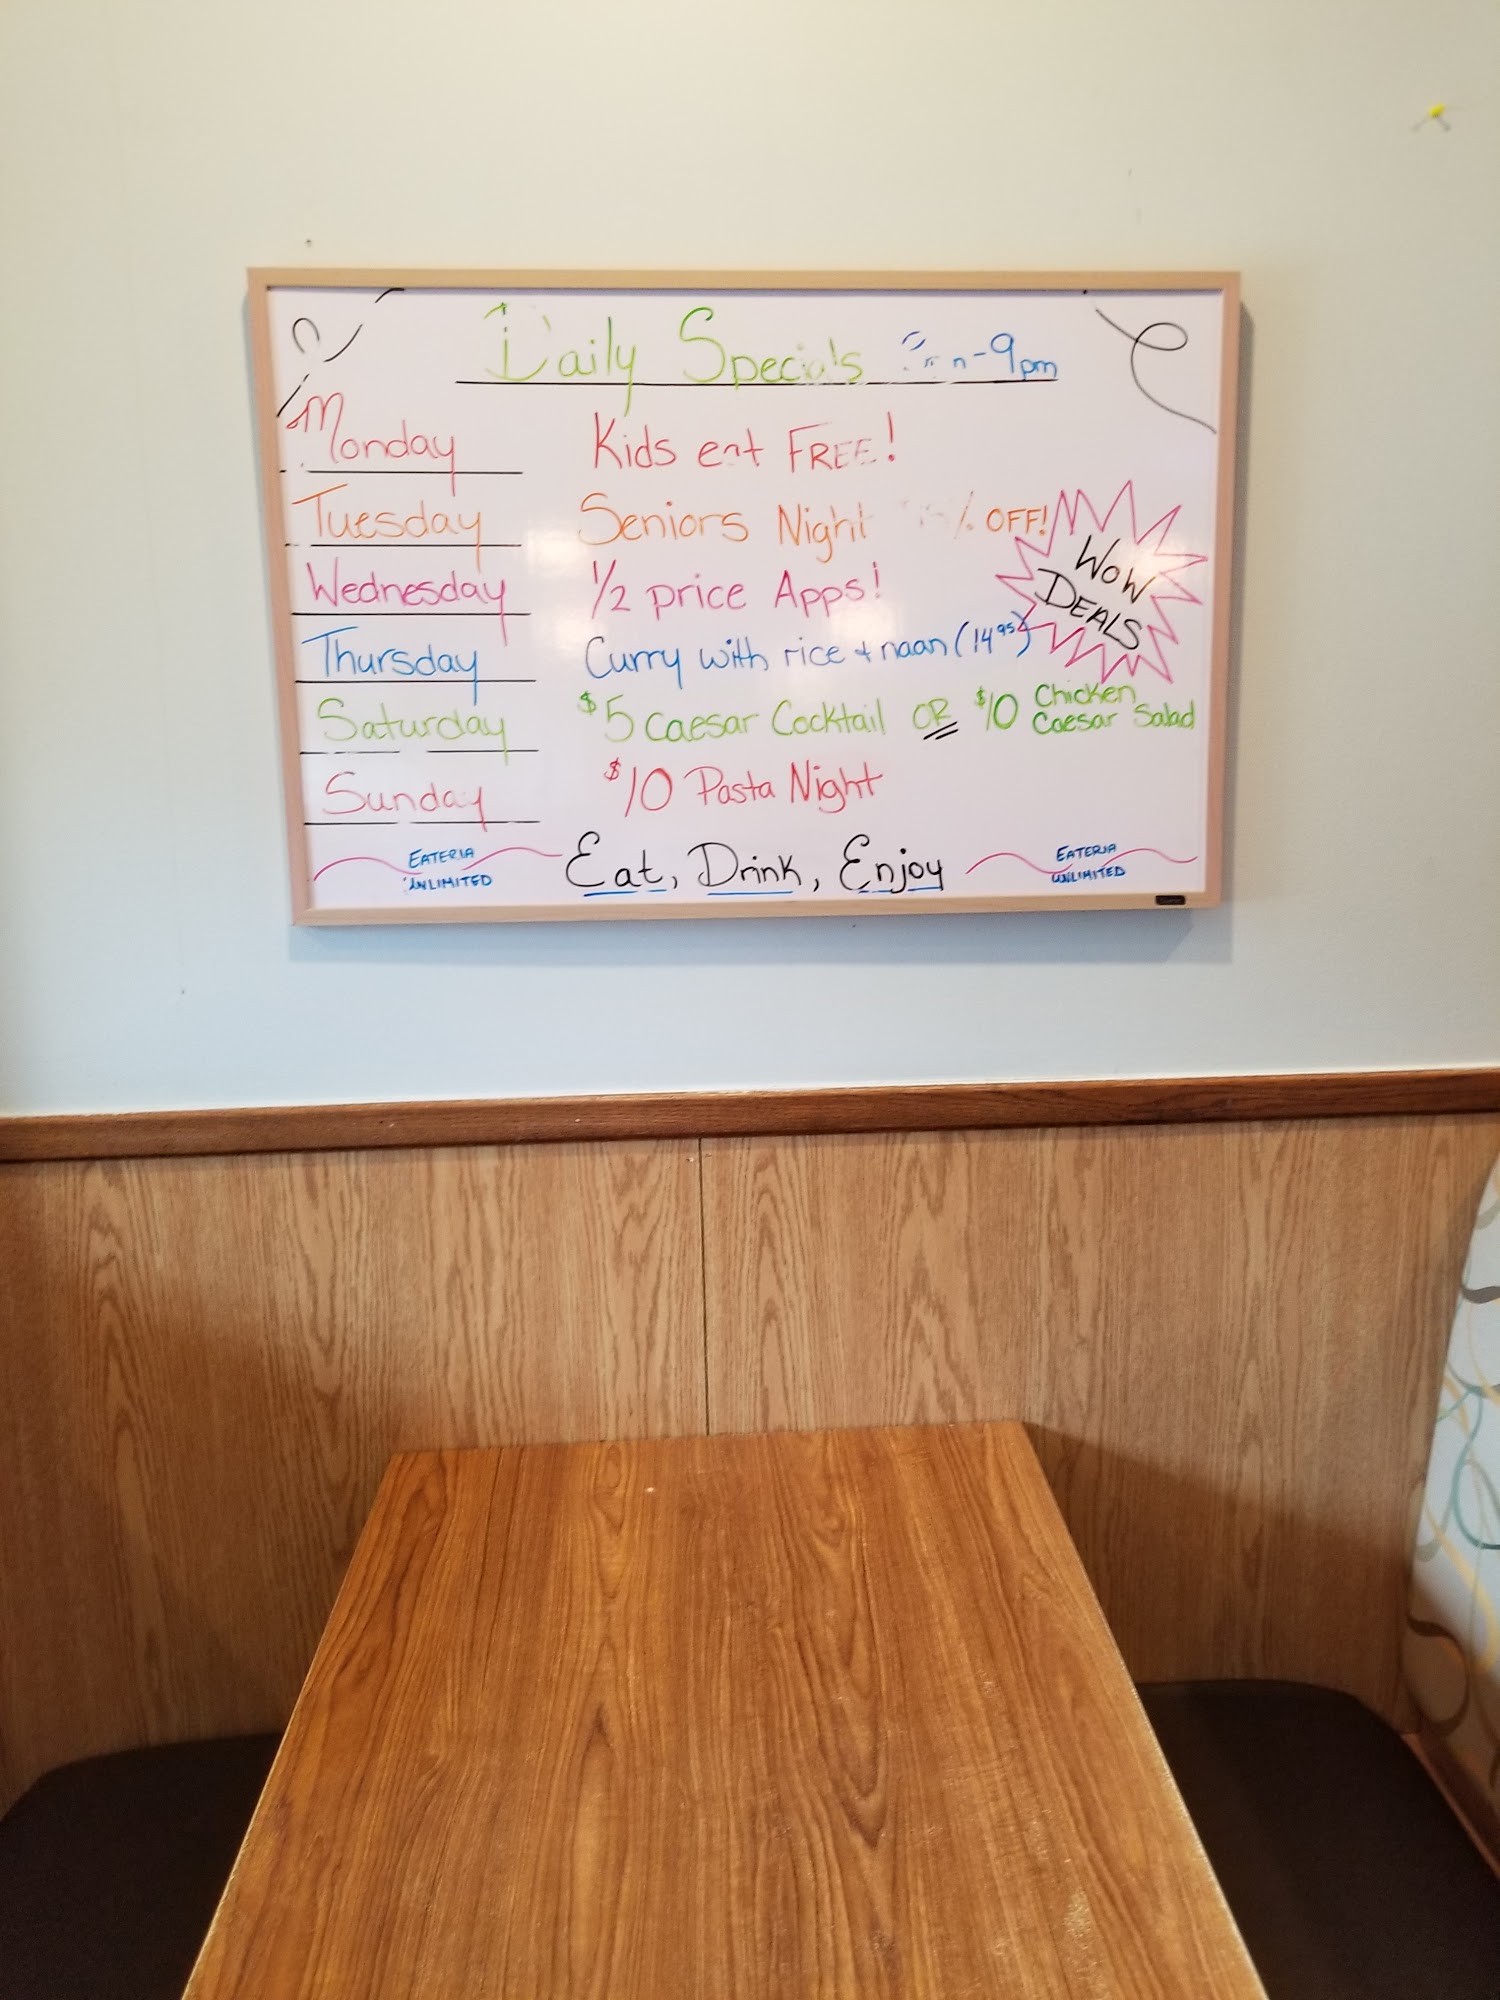 Daily Specials -9pm
Monday Kids eat FREE!
Tuesday Seniors Night % OFF!
Wednesday 1/2 price Apps!
Thursday Curry with rice + naan (14.95)
WOW DEALS
Saturday $5 Caesar Cocktail OR $10 Chicken Caesar Salad
Sunday $10 Pasta Night
EATERIA UNLIMITED
Eat, Drink, Enjoy
EATERIA UNLIMITED